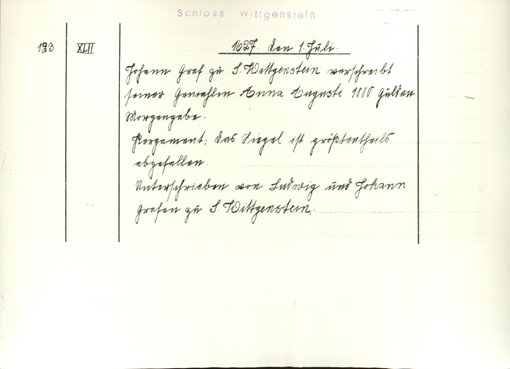 Schloss Wittgenstein
193 XLII 1627. den 1. Juli.
Johann Graf zu S. Wittgenstein verschreibt
seiner Gemahlin Anna Auguste 1000 Gulden
Morgengabe.
Pergament; das Siegel ist größtentheils
abgefallen.
Unterschrieben von Ludwig und Johann
Grafen zu S. Wittgenstein.